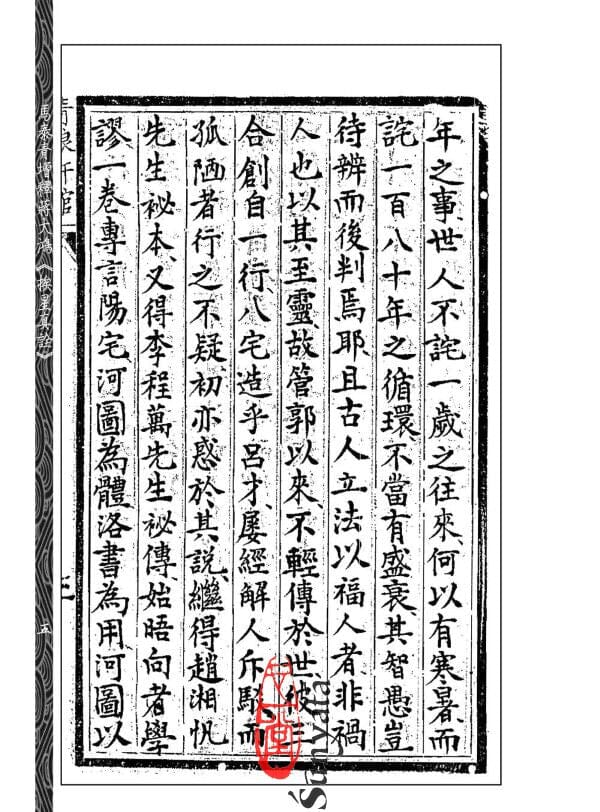 年之事世人不詫一歲之往來何以有寒暑而
詫一百八十年之循環不當有盛衰其智愚豈
待辨而後判焉耶且古人立法以福人者非禍
人也以其至靈故管郭以來不輕傳於世彼三
合創自一行八宅造乎呂才屢經解人斥駁而
孤陋者行之不疑初亦惑於其說繼得趙湘帆
先生祕本又得李程萬先生祕傳始晤向者學
謬一卷專言陽宅河圖為體洛書為用河圖以
三
馬泰青增釋蔣大鴻《挨星真詮》
五
心一堂
Śūnyatā